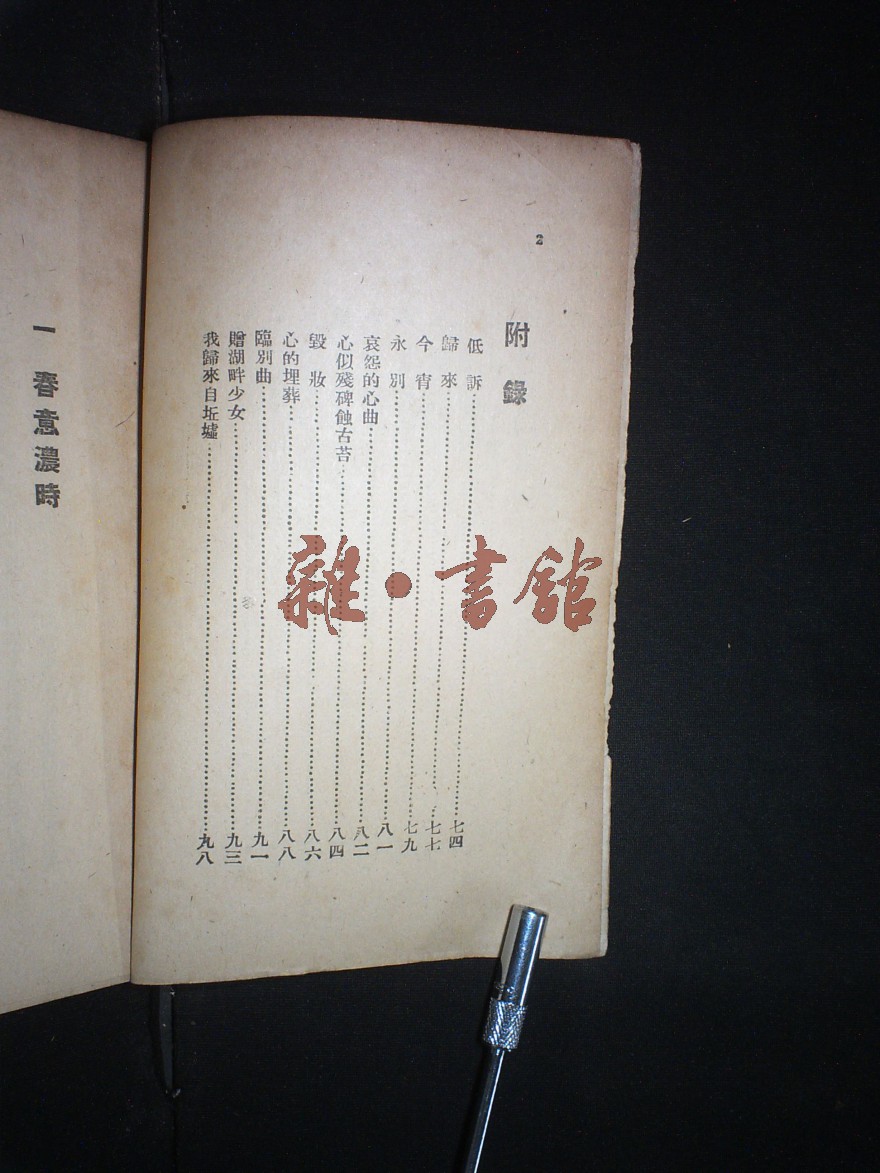 2
附錄
低訴 七四
歸來 七七
今宵 七九
永別 八一
哀怨的心曲 八二
心似殘碑蝕古苔 八四
毀妝 八六
心的埋葬 八八
臨別曲 九一
贈湖畔少女 九三
我歸來自坵墟 九八
一 春意濃時
雜·書館